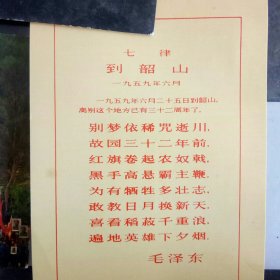 七律
到韶山
一九五九年六月
一九五九年六月二十五日到韶山。
离别这个地方已有三十二周年了。
别梦依稀咒逝川，
故园三十二年前。
红旗卷起农奴戟，
黑手高悬霸主鞭。
为有牺牲多壮志，
敢教日月换新天。
喜看稻菽千重浪，
遍地英雄下夕烟。
毛泽东